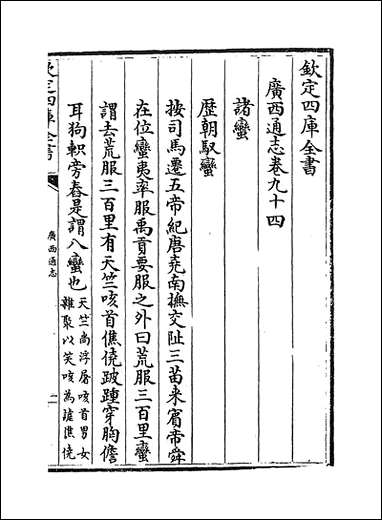 欽定四庫全書
廣西通志卷九十四
諸蠻
歷朝馭蠻
按司馬遷五帝紀唐堯南撫交阯三苗来賔帝舜
在位蠻夷率服禹貢要服之外曰荒服三百里蠻
謂去荒服三百里有天竺咳首僬僥跛踵穿胸儋
耳狗軹旁舂是謂八蠻也
天竺尚浮屠咳首男女
雜聚以笑咳為謔僬僥
欽定四庫全書
廣西通志
一